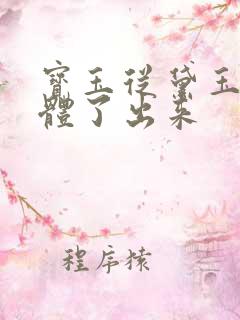 寶玉從黛玉
體了出来
程序猿